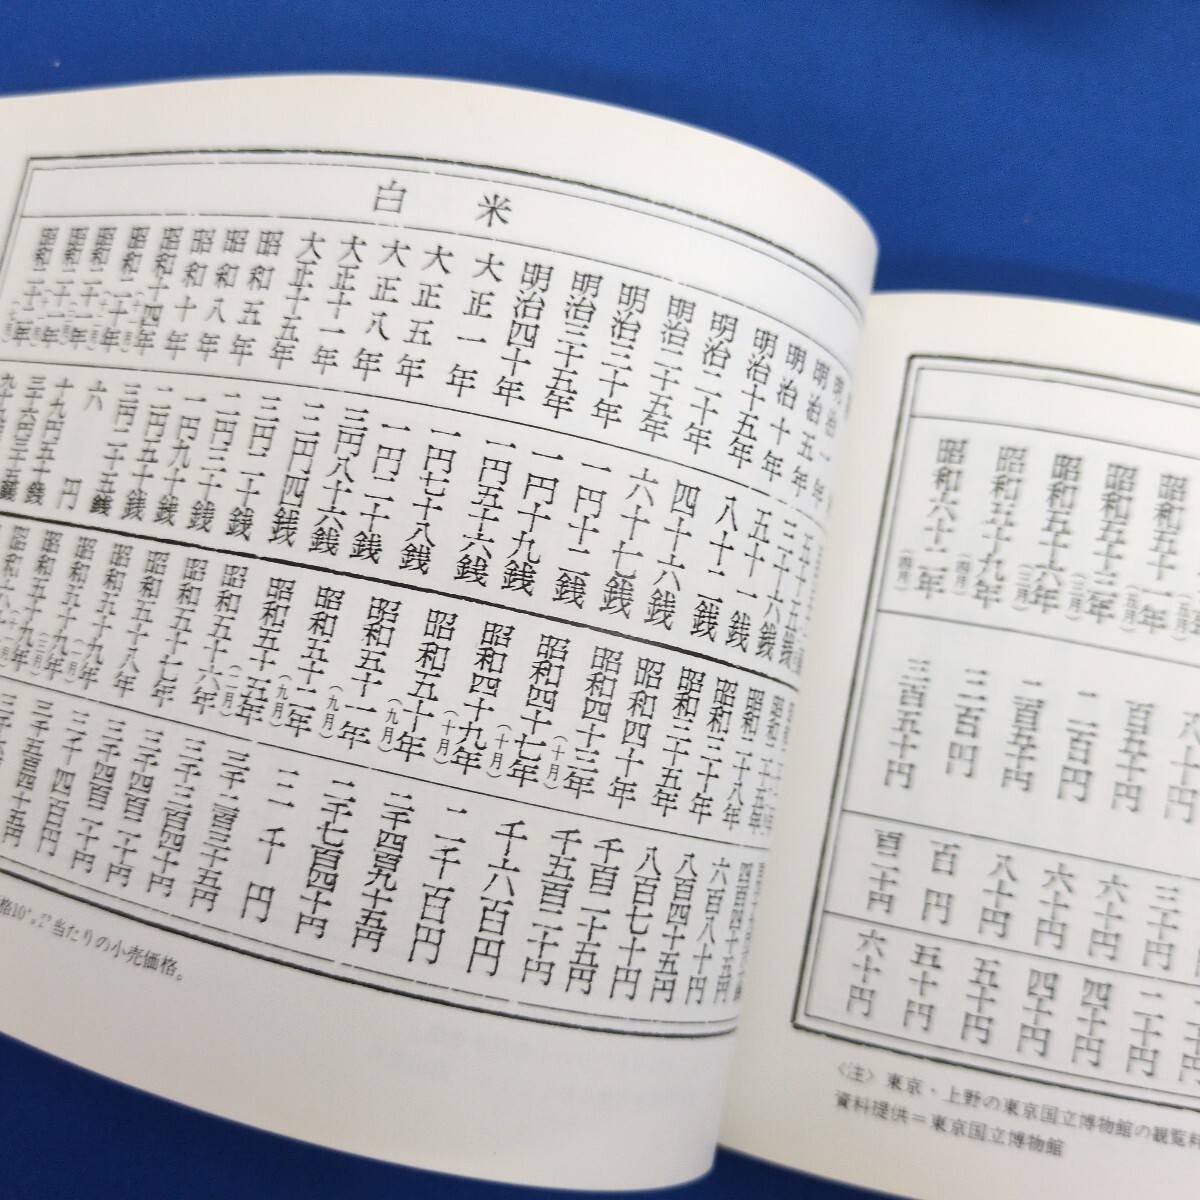 昭和五十一年(五月)
昭和五十三年(三月)
昭和五十六年(三月)
昭和五十九年(四月)
昭和六十二年(四月)
百五十円
二百円
二百五十円
三百円
三百五十円
三十円
六十円
六十円
八十円
百円
百二十円
二十円
四十円
四十円
五十円
五十円
六十円
〈注〉東京・上野の東京国立博物館の観覧料
資料提供=東京国立博物館
白米
明治一年
明治五年
明治十年
明治十五年
明治二十年
明治二十五年
明治三十年
明治三十五年
明治四十年
大正一年
大正五年
大正八年
大正十一年
大正十五年
昭和五年
昭和八年
昭和十年
昭和十四年
三十六銭
五十一銭
八十二銭
四十六銭
六十七銭
一円十二銭
一円十九銭
一円五十六銭
一円七十八銭
一円二十銭
三円八十六銭
三円四銭
三円二十銭
二円三十銭
一円九十銭
二円五十銭
三円二十五銭
六円
十九円五十銭
昭和二十八年
昭和三十年
昭和三十五年
昭和四十年
昭和四十三年
昭和四十七年(十月)
昭和四十九年(十月)
昭和五十年(十月)
昭和五十一年(九月)
昭和五十二年(九月)
昭和五十五年(九月)
昭和五十六年(二月)
昭和五十七年
昭和五十八年
昭和五十九年(一月)
昭和五十九年(三月)
四百四十五円
六百八十円
八百四十五円
八百七十円
千百二十五円
千五百二十円
千六百円
二千百円
二千四百九十五円
二千七百四十円
三千円
三千二百三十五円
三千三百四十円
三千四百二十円
三千四百円
三千五百四十五円
格10㌔当たりの小売価格。